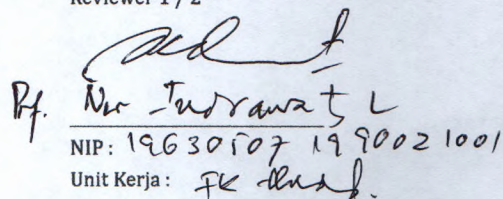 Reviewer 1 / 2
Prof. Nur Indrawati L
NIP: 19630507 199002 1001
Unit Kerja: FK Unand.